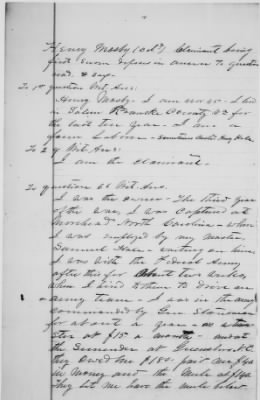 Henry Mosby (Col'd) Claimant being
first sworn deposes in answer to question
read. & says.
To 1st question Wit. Ans:
Henry Mosby. I am now 45. I live
in Salem Roanoke County Va for
the last ten year. I am a
farm Laborer - sometimes called Henry
To 2 qr Wit. Ans:
I am the claimant.
To question 66 Wit. Ans.
I was the owner. The third year
of the war, I was captured at
Morehead North Carolina - when
I was employed by my master,
Samuel in waiting on him,
I was with the Federal Army
after this for about two weeks,
when I hired to them to drive an
army team - I was in the army
commanded by Gen. Stoneman
for about a year - as a team
ster at $15 a month - and at
the Surrender at Greensboro N.C.
they owed me $180. paid me $40
in money and the mule at $140
They let me have the mule